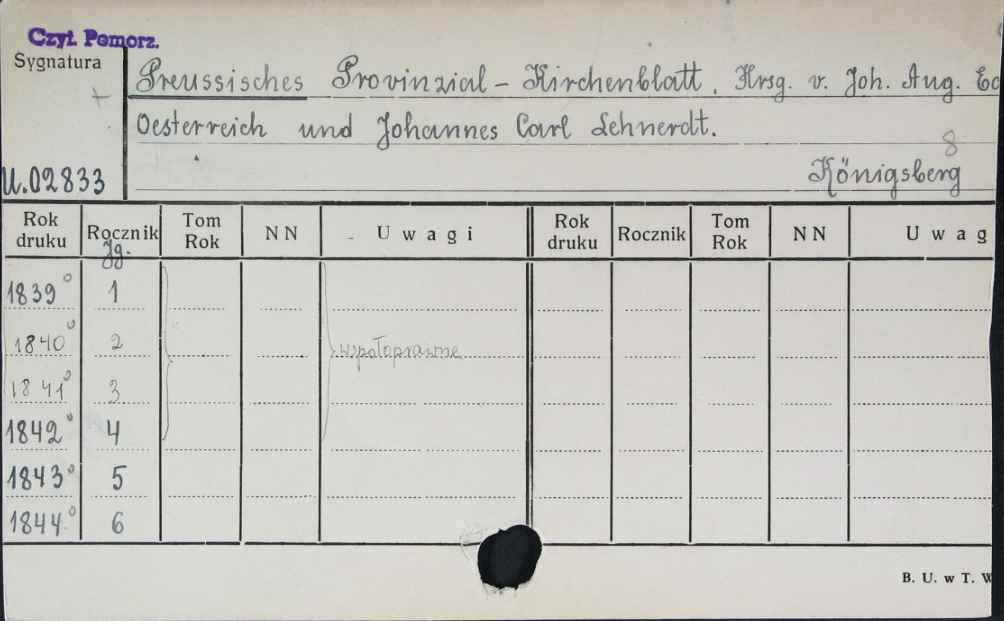 Czyt. Pomorz.
Sygnatura
+
U.02833
Preussisches Provinzial - Kirchenblatt. Hrsg. v. Joh. Aug.
Oesterreich und Johannes Carl Lehnerdt.
8
Königsberg
Rok druku Rocznik Jg. Tom Rok NN Uwagi Rok druku Rocznik Tom Rok NN Uwag
1839° 1
1840° 2 współoprawne
1841° 3
1842° 4
1843° 5
1844° 6
B. U. w T. W